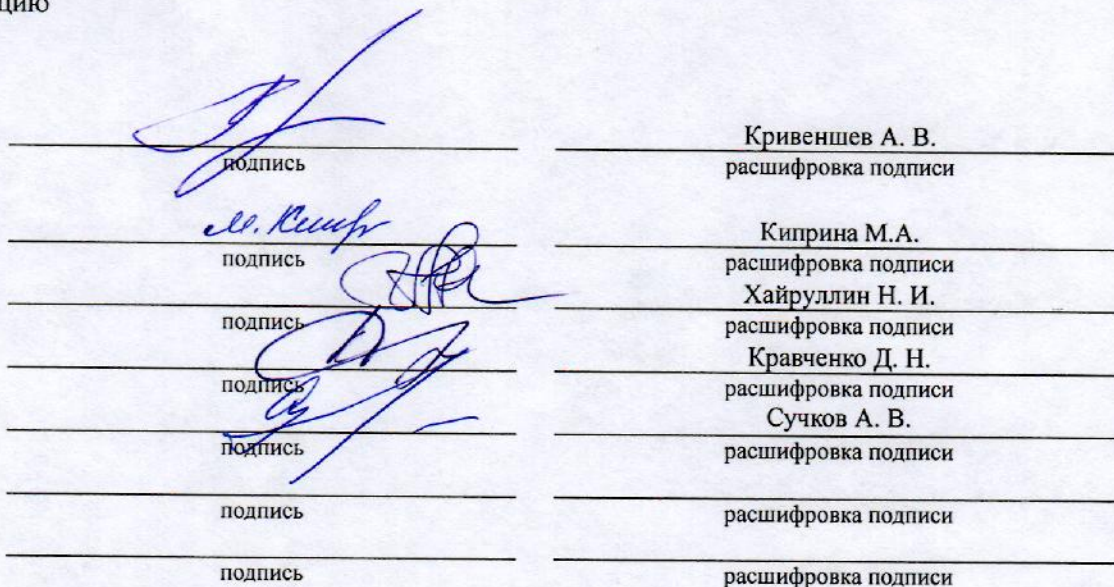 цию
Кривеншев А. В.
подпись расшифровка подписи
Киприна М.А.
подпись расшифровка подписи
Хайруллин Н. И.
подпись расшифровка подписи
Кравченко Д. Н.
подпись расшифровка подписи
Сучков А. В.
подпись расшифровка подписи
подпись расшифровка подписи
подпись расшифровка подписи